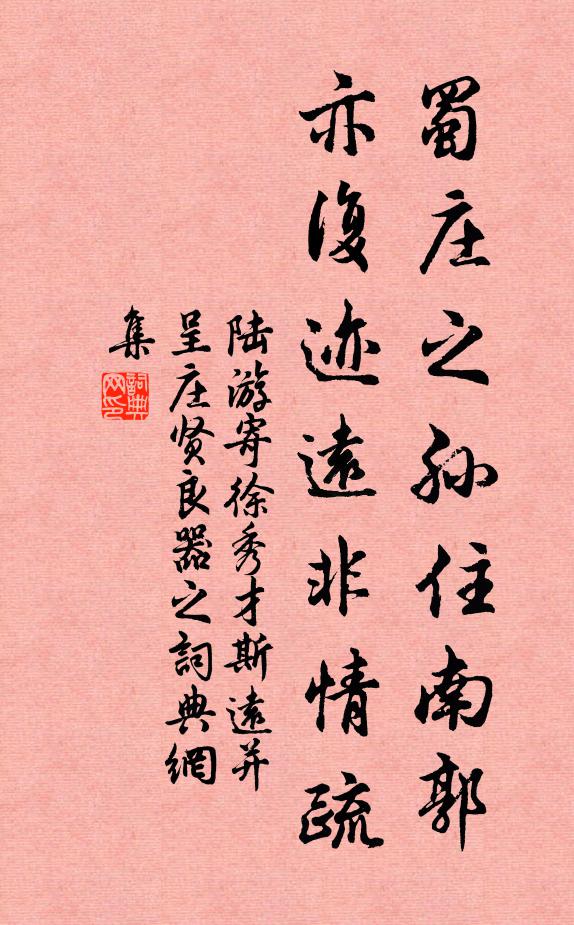 蜀庄之孙住南郭
亦復迹遠非情疏
陆游寄徐秀才斯遠并
呈庄贤良器之詞典網
集
詞典
网印